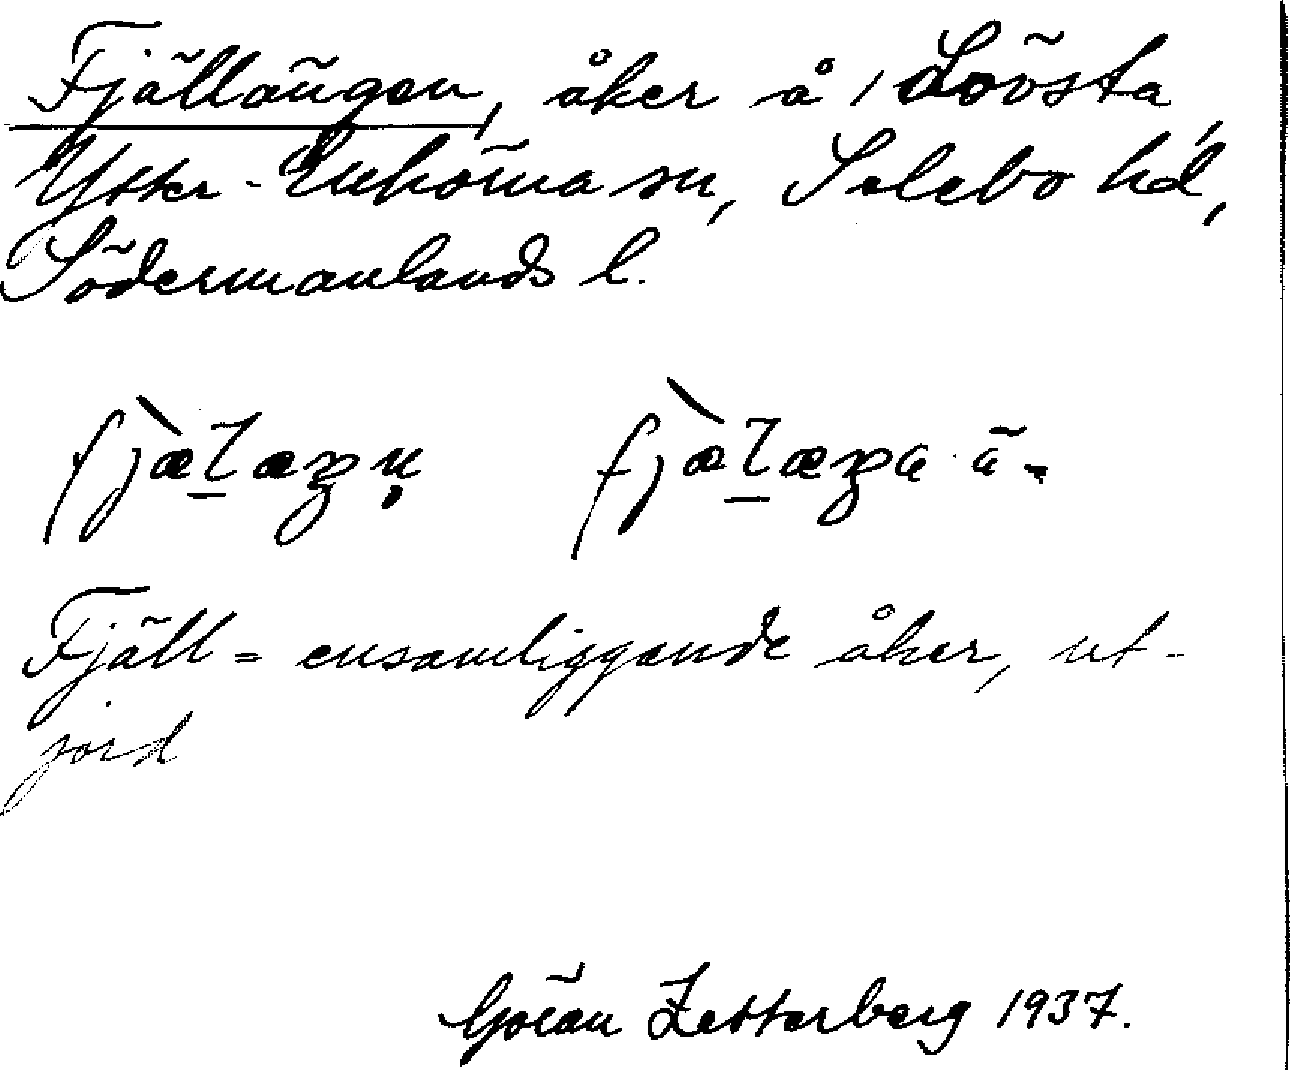 Fjällängen, åker å Lövsta,
Ytter-Enhörna sn, Selebo hd,
Södermanlands l.
fjæ̀l̠æŋn̥ fjæ̀l̠æŋa
Fjäll = ensamliggande åker, ut-
jord
Göran Zetterberg 1937.